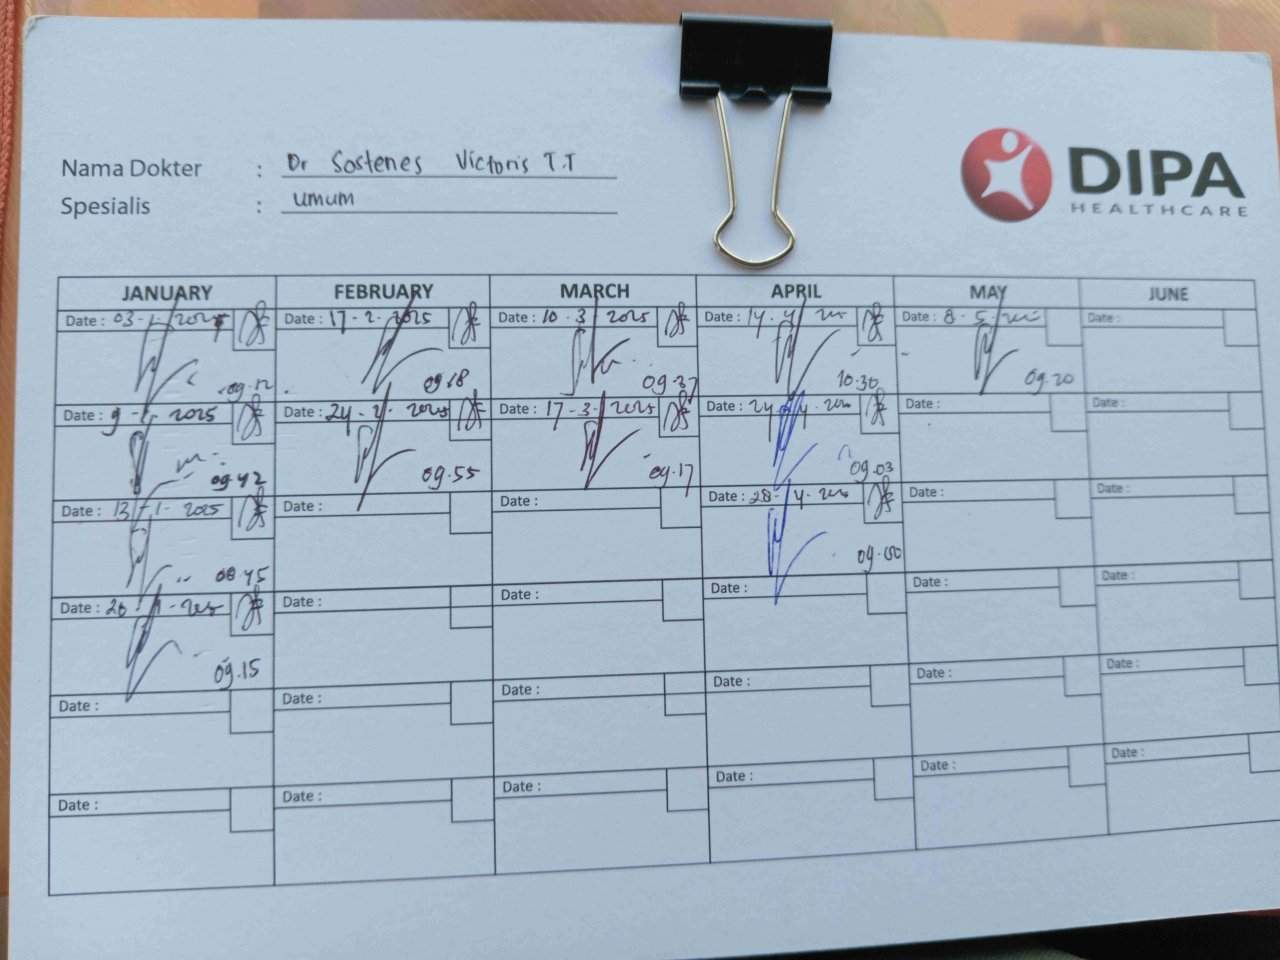 DIPA
HEALTHCARE
Nama Dokter : Dr Sostenes Victoris T.T
Spesialis : Umum
JANUARY FEBRUARY MARCH APRIL MAY JUNE
Date : 03-1-2025 Date : 17-2-2025 Date : 10-3-2025 Date : 14-4- Date : 8-5- Date :
09.12 09.18 09.37 10.30 09.20
Date : 9-1-2025 Date : 24-2-2025 Date : 17-3-2025 Date : 24-4- Date : Date :
09.42 09.55 09.17 09.03
Date : 13-1-2025 Date : Date : Date : 28-4- Date : Date :
08.45 09.00
Date : 20-1- Date : Date : Date : Date : Date :
09.15
Date : Date : Date : Date : Date : Date :
Date : Date : Date : Date : Date : Date :